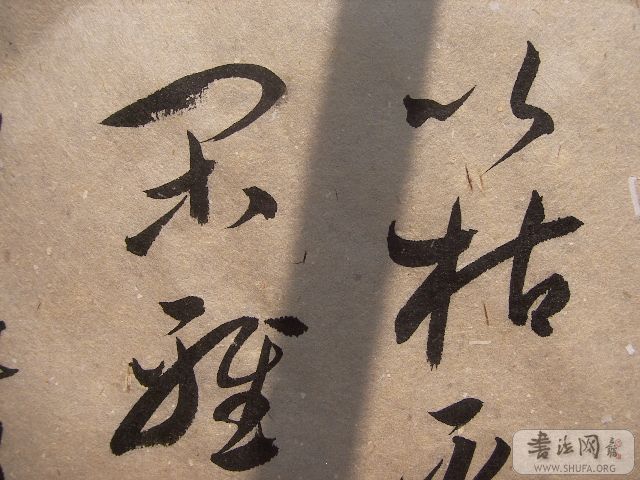 以枯
閑雅
書法网
WWW.SHUFA.ORG